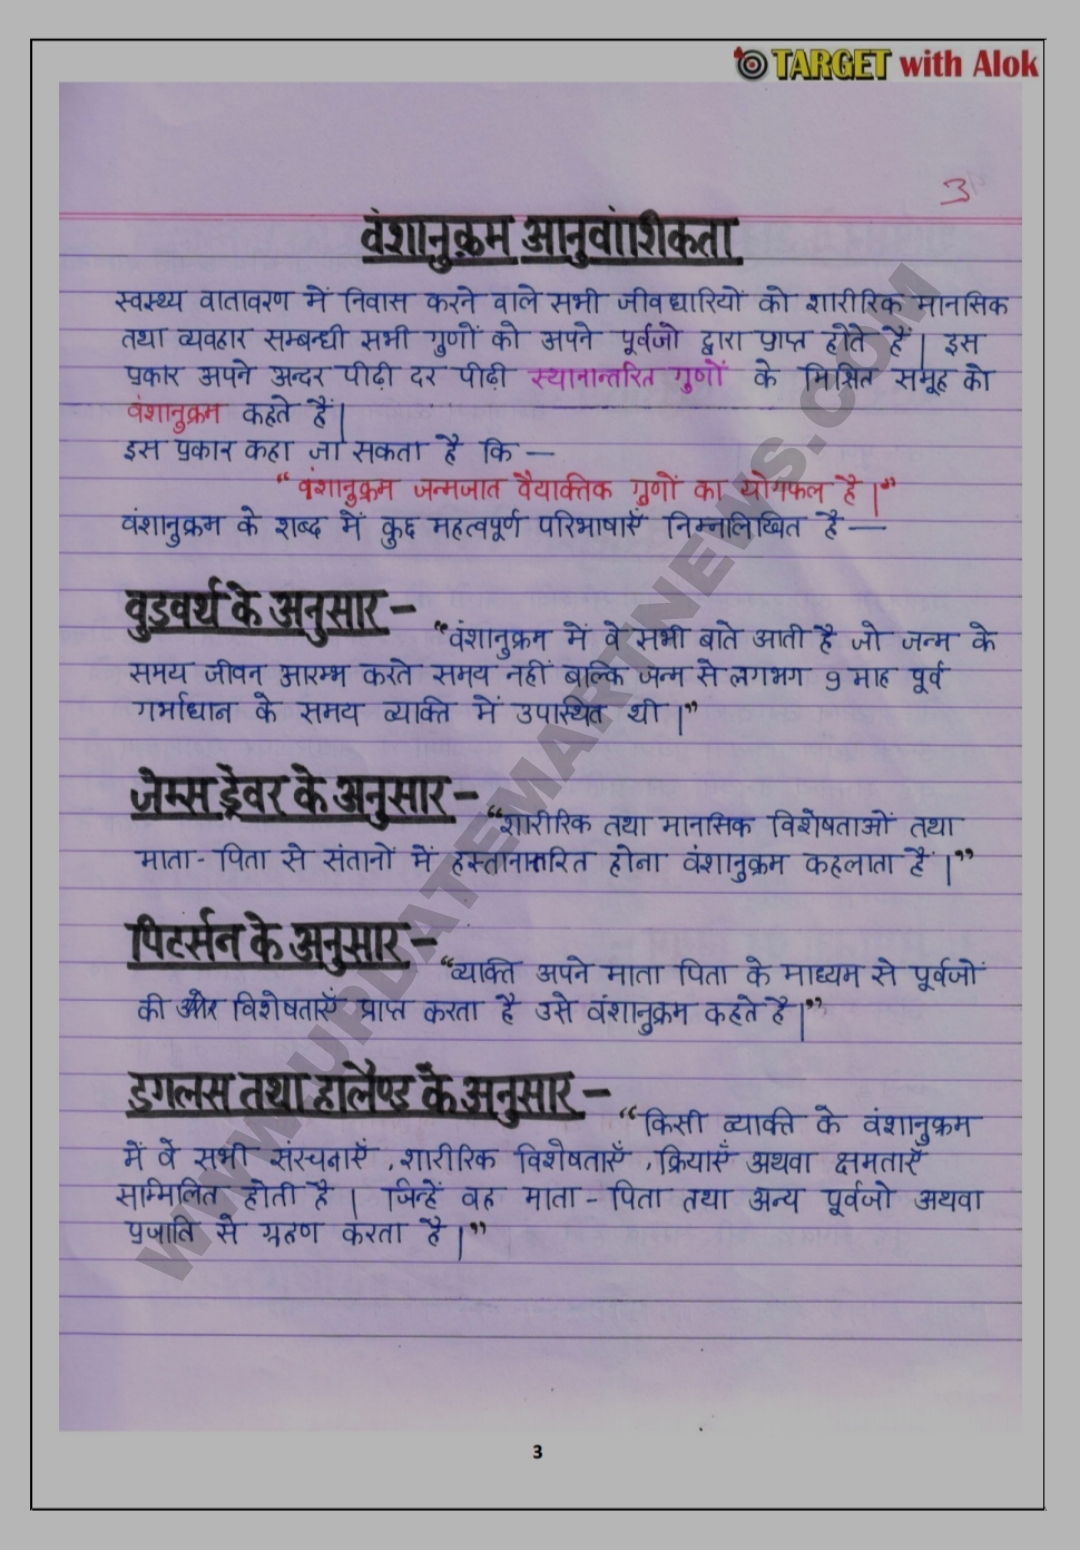 TARGET with Alok
3
वंशानुक्रम आनुवांशिकता
स्वस्थ्य वातावरण में निवास करने वाले सभी जीवधारियों को शारीरिक मानसिक
तथा व्यवहार सम्बन्धी सभी गुणों को अपने पूर्वजो द्वारा प्राप्त होते हैं। इस
प्रकार अपने अन्दर पीढ़ी दर पीढ़ी स्थानान्तरित गुणों के मिश्रित समूह को
वंशानुक्रम कहते हैं।
इस प्रकार कहा जा सकता है कि —
“वंशानुक्रम जन्मजात वैयाक्तिक गुणों का योगफल है।”
वंशानुक्रम के शब्द में कुछ महत्वपूर्ण परिभाषाएँ निम्नलिखित है —
वुडवर्थ के अनुसार –
“वंशानुक्रम में वे सभी बाते आती है जो जन्म के
समय जीवन आरम्भ करते समय नहीं बाल्कि जन्म से लगभग 9 माह पूर्व
गर्भाधान के समय व्याक्ति में उपास्थित थी।”
जेम्स ड्रेवर के अनुसार –
“शारीरिक तथा मानसिक विशेषताओं तथा
माता - पिता से संतानों में हस्तानान्तरित होना वंशानुक्रम कहलाता हैं।”
पिटर्सन के अनुसार –
“व्याक्ति अपने माता पिता के माध्यम से पूर्वजों
की और विशेषताएँ प्राप्त करता है उसे वंशानुक्रम कहते है।”
डगलस तथा हालैण्ड के अनुसार –
“किसी व्याक्ति के वंशानुक्रम
में वे सभी संरचनाएँ , शारीरिक विशेषताएँ , क्रियाएँ अथवा क्षमताएँ
साम्मिलित होती है। जिन्हें वह माता - पिता तथा अन्य पूर्वजो अथवा
प्रजाति से ग्रहण करता है।”
WWW.UPDATEMARTNEWS.COM
3